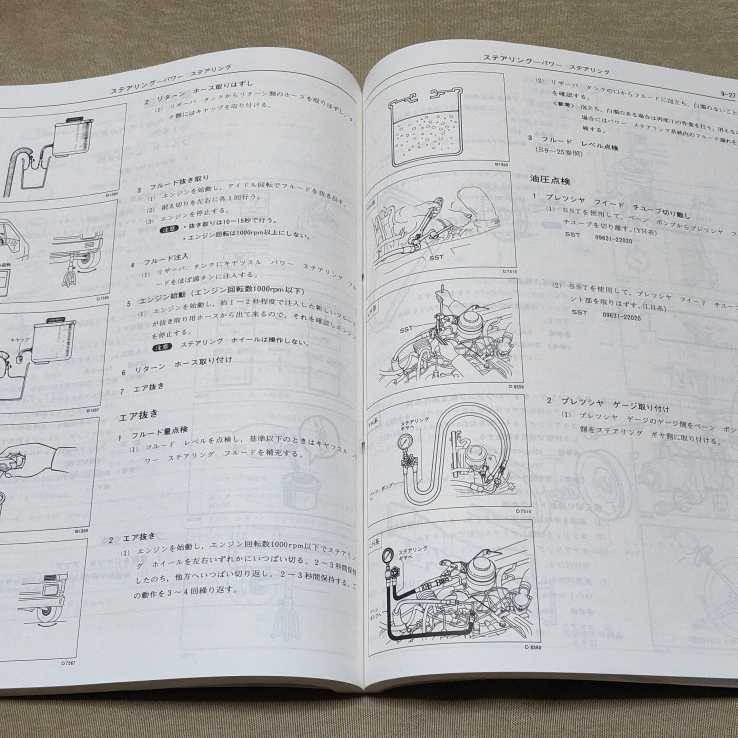 ステアリング―パワー ステアリング
2 リターン ホース取りはずし
(1) リザーバ タンクからリターン側のホースを取りはずし、
ク側にはキャップを取り付ける。
3 フルード抜き取り
(1) エンジンを始動し、アイドル回転でフルードを抜き出す。
(2) 据え切りを左右に各1回行う。
(3) エンジンを停止する。
注意 ・抜き取りは10～15秒で行う。
・エンジン回転は1000rpm以上にしない。
4 フルード注入
(1) リザーバ タンクにキヤツスル パワー ステアリング フル
ードをほぼ満タンに注入する。
5 エンジン始動(エンジン回転数1000rpm以下)
(1) エンジンを始動し、約1～2秒程度で注入した新しいフルード
が抜き取り用ホースから出て来るので、それを確認しエンジン
を停止する。
注意 ステアリング ホイールは操作しない。
6 リターン ホース取り付け
7 エア抜き
エア抜き
1 フルード量点検
(1) フルード レベルを点検し、基準以下のときはキヤツスル パ
ワー ステアリング フルードを補充する。
2 エア抜き
(1) エンジンを始動し、エンジン回転数1000rpm以下でステアリン
グ ホイールを左右いずれかにいつぱい切る。2～3秒間保持
したのち、他方へいつぱい切り返し、2～3秒間保持する。こ
の動作を3～4回繰り返す。
キャップ
D7567
ステアリング―パワー ステアリング
9-27
(2) リザーバ タンクの口からフルードに泡立ち、白濁のないこと
を確認する。
(参考) 泡立ち、白濁のある場合は再度(1)の作業を行う。消えない
場合にはパワー ステアリング系統内のフルード漏れを
検する。
3 フルード レベル点検
(S9―25参照)
油圧点検
1 プレツシヤ フイード チューブ切り離し
(1) SSTを使用して、ベーン ポンプからプレツシヤ フ
チューブを切り離す。(YH系)
SST 09631-22020
(2) SSTを使用して、プレツシヤ フイード チューブ
ント部を取りはずす。(LH系)
SST 09631-22020
2 プレツシヤ ゲージ取り付け
(1) プレツシヤ ゲージのゲージ側をベーン ポン
側をステアリング ギヤ側に取り付ける。
SST
D7515
SST
D8359
ステアリング
ギヤへ
D7516
ステアリング
ギヤへ
D8360